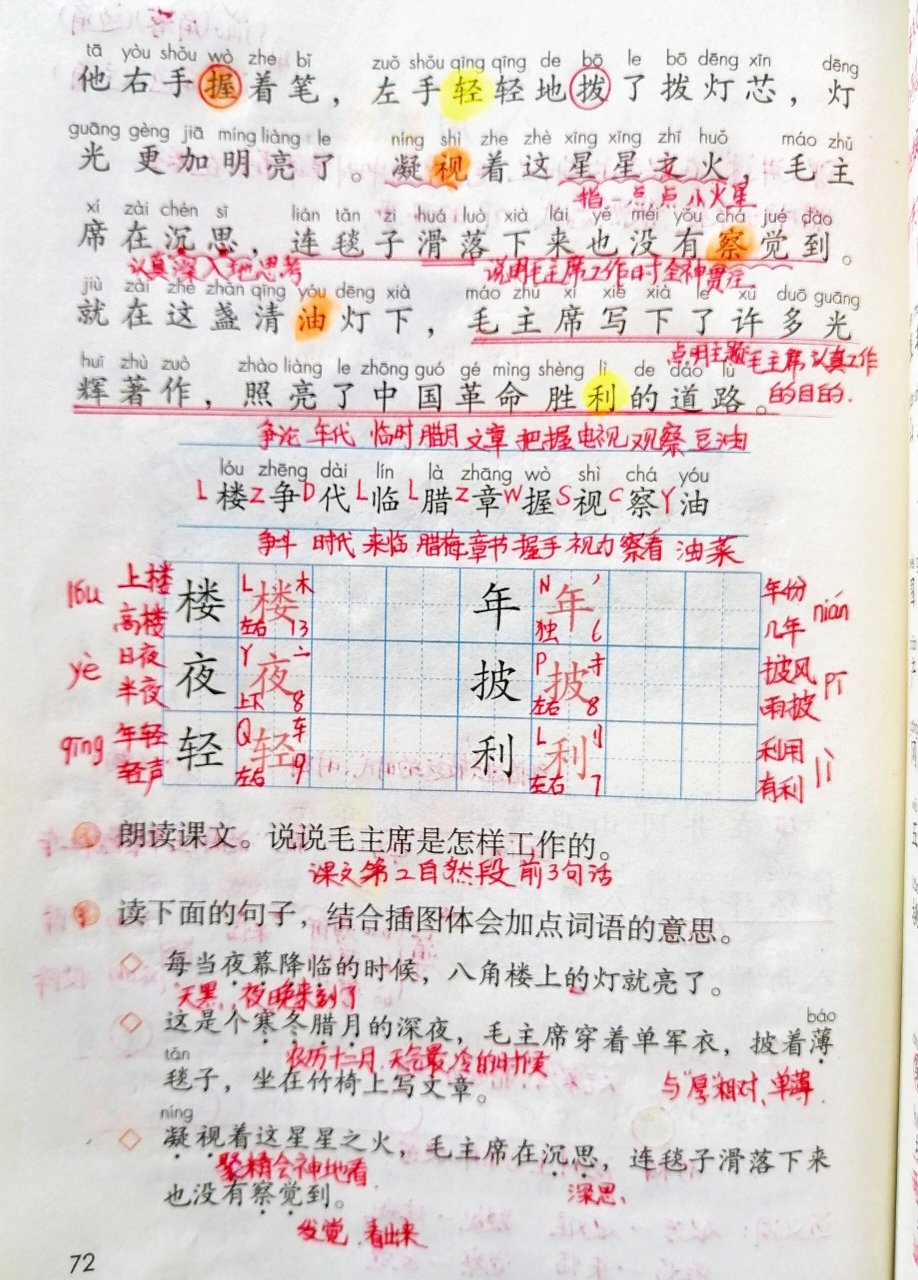 tā yòu shǒu wò zhe bǐ zuǒ shǒu qīng qīng de bō le bō dēng xīn dēng
他右手握着笔，左手轻轻地拨了拨灯芯，灯
guāng gèng jiā míng liàng le níng shì zhe zhè xīng xīng zhī huǒ máo zhǔ
光更加明亮了。凝视着这星星之火，毛主
指一点点小火星
xí zài chén sī lián tǎn zi huá luò xià lái yě méi yǒu chá jué dào
席在沉思，连毯子滑落下来也没有察觉到。
认真深入地思考 说明毛主席工作时全神贯注.
jiù zài zhè zhǎn qīng yóu dēng xià máo zhǔ xí xiě xià le xǔ duō guāng
就在这盏清油灯下，毛主席写下了许多光
点明主题毛主席认真工作
huī zhù zuò zhào liàng le zhōng guó gé mìng shèng lì de dào lù
辉著作，照亮了中国革命胜利的道路。
的目的.
争论 年代 临时 腊月 文章 把握 电视 观察 豆油
lóu zhēng dài lín là zhāng wò shì chá yóu
L楼 Z争 D代 L临 L腊 Z章 W握 S视 C察 Y油
争斗 时代 来临 腊梅 章节 握手 视力 察看 油菜
lóu 上楼 高楼 楼 L 楼 木 左右 13 年 N 年 丿 独 6 年份 几年 nián
yè 日夜 半夜 夜 Y 夜 亠 上下 8 披 P 披 扌 左右 8 披风 雨披 pī
qīng 年轻 轻声 轻 Q 轻 车 左右 9 利 L 利 刂 左右 7 利用 有利 lì
朗读课文。说说毛主席是怎样工作的。
课文第二自然段前3句话
读下面的句子，结合插图体会加点词语的意思。
◇ 每当夜幕降临的时候，八角楼上的灯就亮了。
天黑，夜晚来到了
báo
◇ 这是个寒冬腊月的深夜，毛主席穿着单军衣，披着薄
tǎn
农历十二月.天气最冷的时候
毯子，坐在竹椅上写文章。
与“厚”相对、单薄.
níng
◇ 凝视着这星星之火，毛主席在沉思，连毯子滑落下来
聚精会神地看. 深思、
也没有察觉到。
发觉，看出来
72